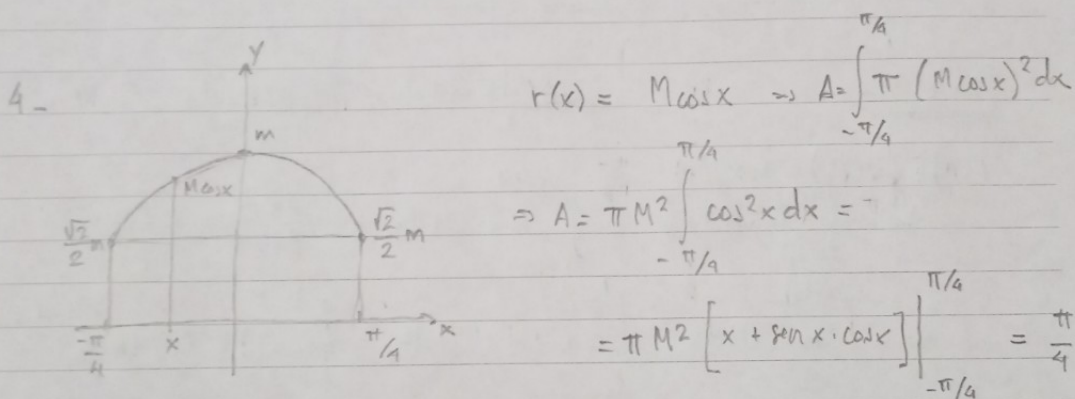 4-
y
m
M cos x
√2/2 m
√2/2 m
-π/4
x
π/4
x
r(x) = M cos x ⇒ A = ∫_{-π/4}^{π/4} π (M cos x)² dx
⇒ A = π M² ∫_{-π/4}^{π/4} cos² x dx =
= π M² [x + sen x · cos x] |_{-π/4}^{π/4} = π/4